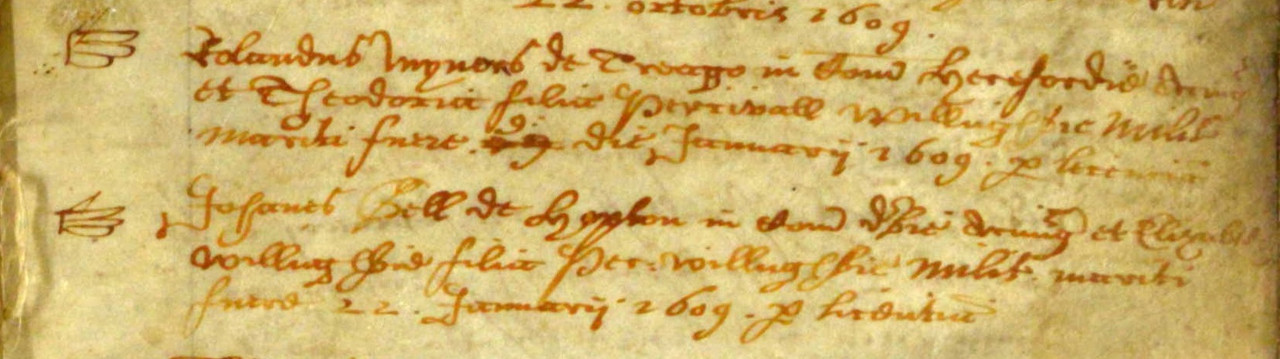 22. octobris 1609.
Rolandus Mynors de Treago in Com̄ Herefordie Armig
et Theodoria filia Percivall Willughbie Milit
mariti fuere die Januarij 1609. p licentiā
Johanes Bell de Hopton in Com̄ d'bie Armig et Elizabeth
Willughbie filia Per: Willughbie Milit. mariti
fuere 22. Januarij 1609. p licentiā